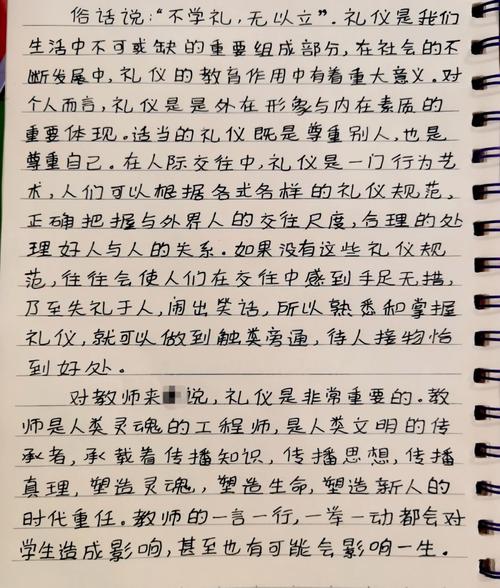 俗话说:“不学礼,无以立”.礼仪是我们
生活中不可或缺的重要组成部分,在社会的不
断发展中,礼仪的教育作用中有着重大意义.对
个人而言,礼仪是是外在形象与内在素质的
重要体现。适当的礼仪既是尊重别人,也是
尊重自己。在人际交往中,礼仪是一门行为艺
术,人们可以根据各式各样的礼仪规范,
正确把握与外界人的交往尺度,合理的处
理好人与人的关系。如果没有这些礼仪规
范,往往会使人们在交往中感到手足无措,
乃至失礼于人,闹出笑话,所以熟悉和掌握
礼仪,就可以做到触类旁通,待人接物恰
到好处。
对教师来说,礼仪是非常重要的.教
师是人类灵魂的工程师,是人类文明的传
承者,承载着传播知识,传播思想,传播
真理,塑造灵魂,塑造生命,塑造新人的
时代重任.教师的一言一行,一举一动都会对
学生造成影响,甚至也有可能会影响一生.